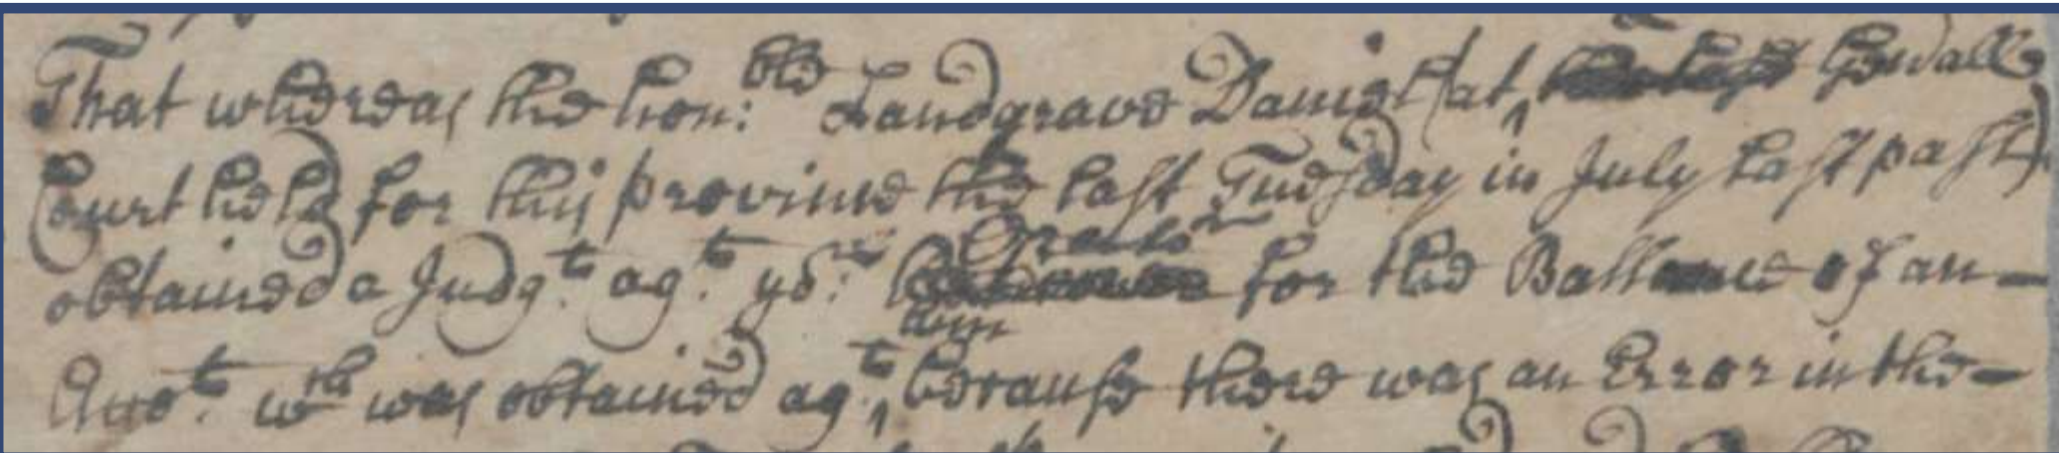 That whereas the hon: ble Landgrave Daniel (at Genᵈall
Court held for this province the last Tuesday in July last past)
obtained a Judgt. agt. yor. Orator for the Ballance of an
Accot. wch was obtained agt. him because there was an Error in the